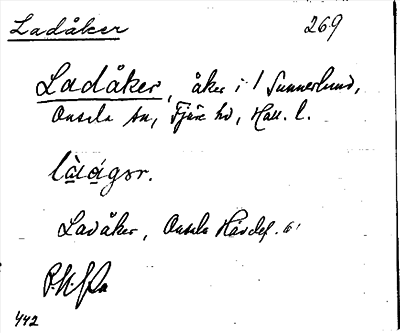 Ladåker 269
Ladåker, åker i Sunnerlund,
Onsala sn, Fjäre hd, Hall. l.
làágər.
Ladåker, Onsala Hävdef.
442